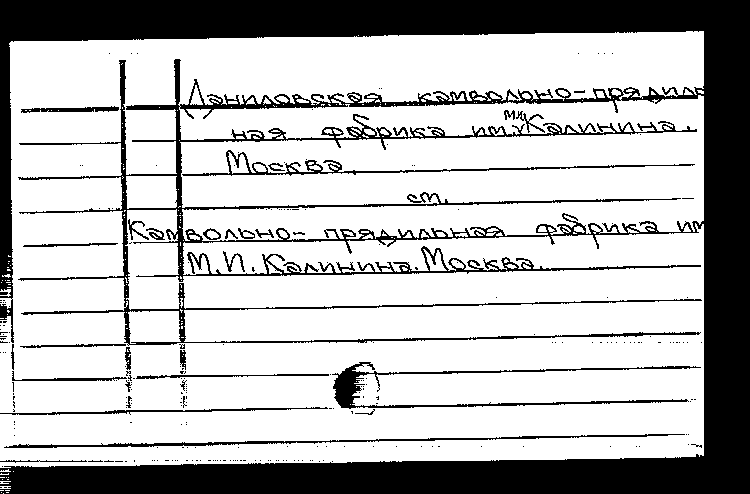 Даниловская камвольно-прядиль
ная фабрика им. МИ Калинина.
Москва.
см.
Камвольно-прядильная фабрика им
М.И. Калинина. Москва.